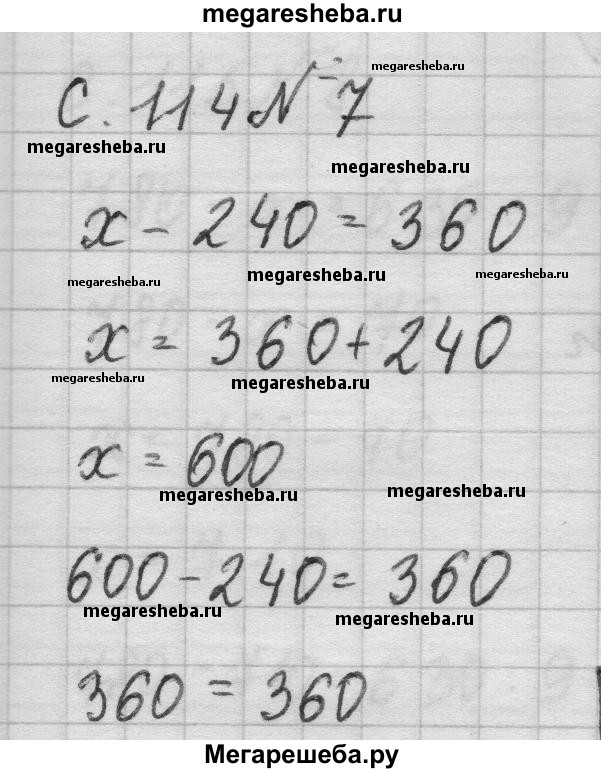 megaresheba.ru
megaresheba.ru
С. 114 № 7
megaresheba.ru megaresheba.ru
x - 240 = 360
megaresheba.ru megaresheba.ru megaresheba.ru
x = 360 + 240
megaresheba.ru megaresheba.ru
x = 600
megaresheba.ru megaresheba.ru
600 - 240 = 360
megaresheba.ru megaresheba.ru
360 = 360
Мегарешеба.ру